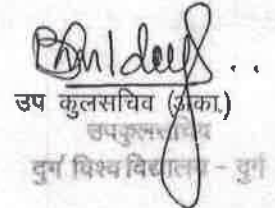 उप कुलसचिव (अका.)
उपकुलसचिव
दुर्ग विश्व विद्यालय - दुर्ग